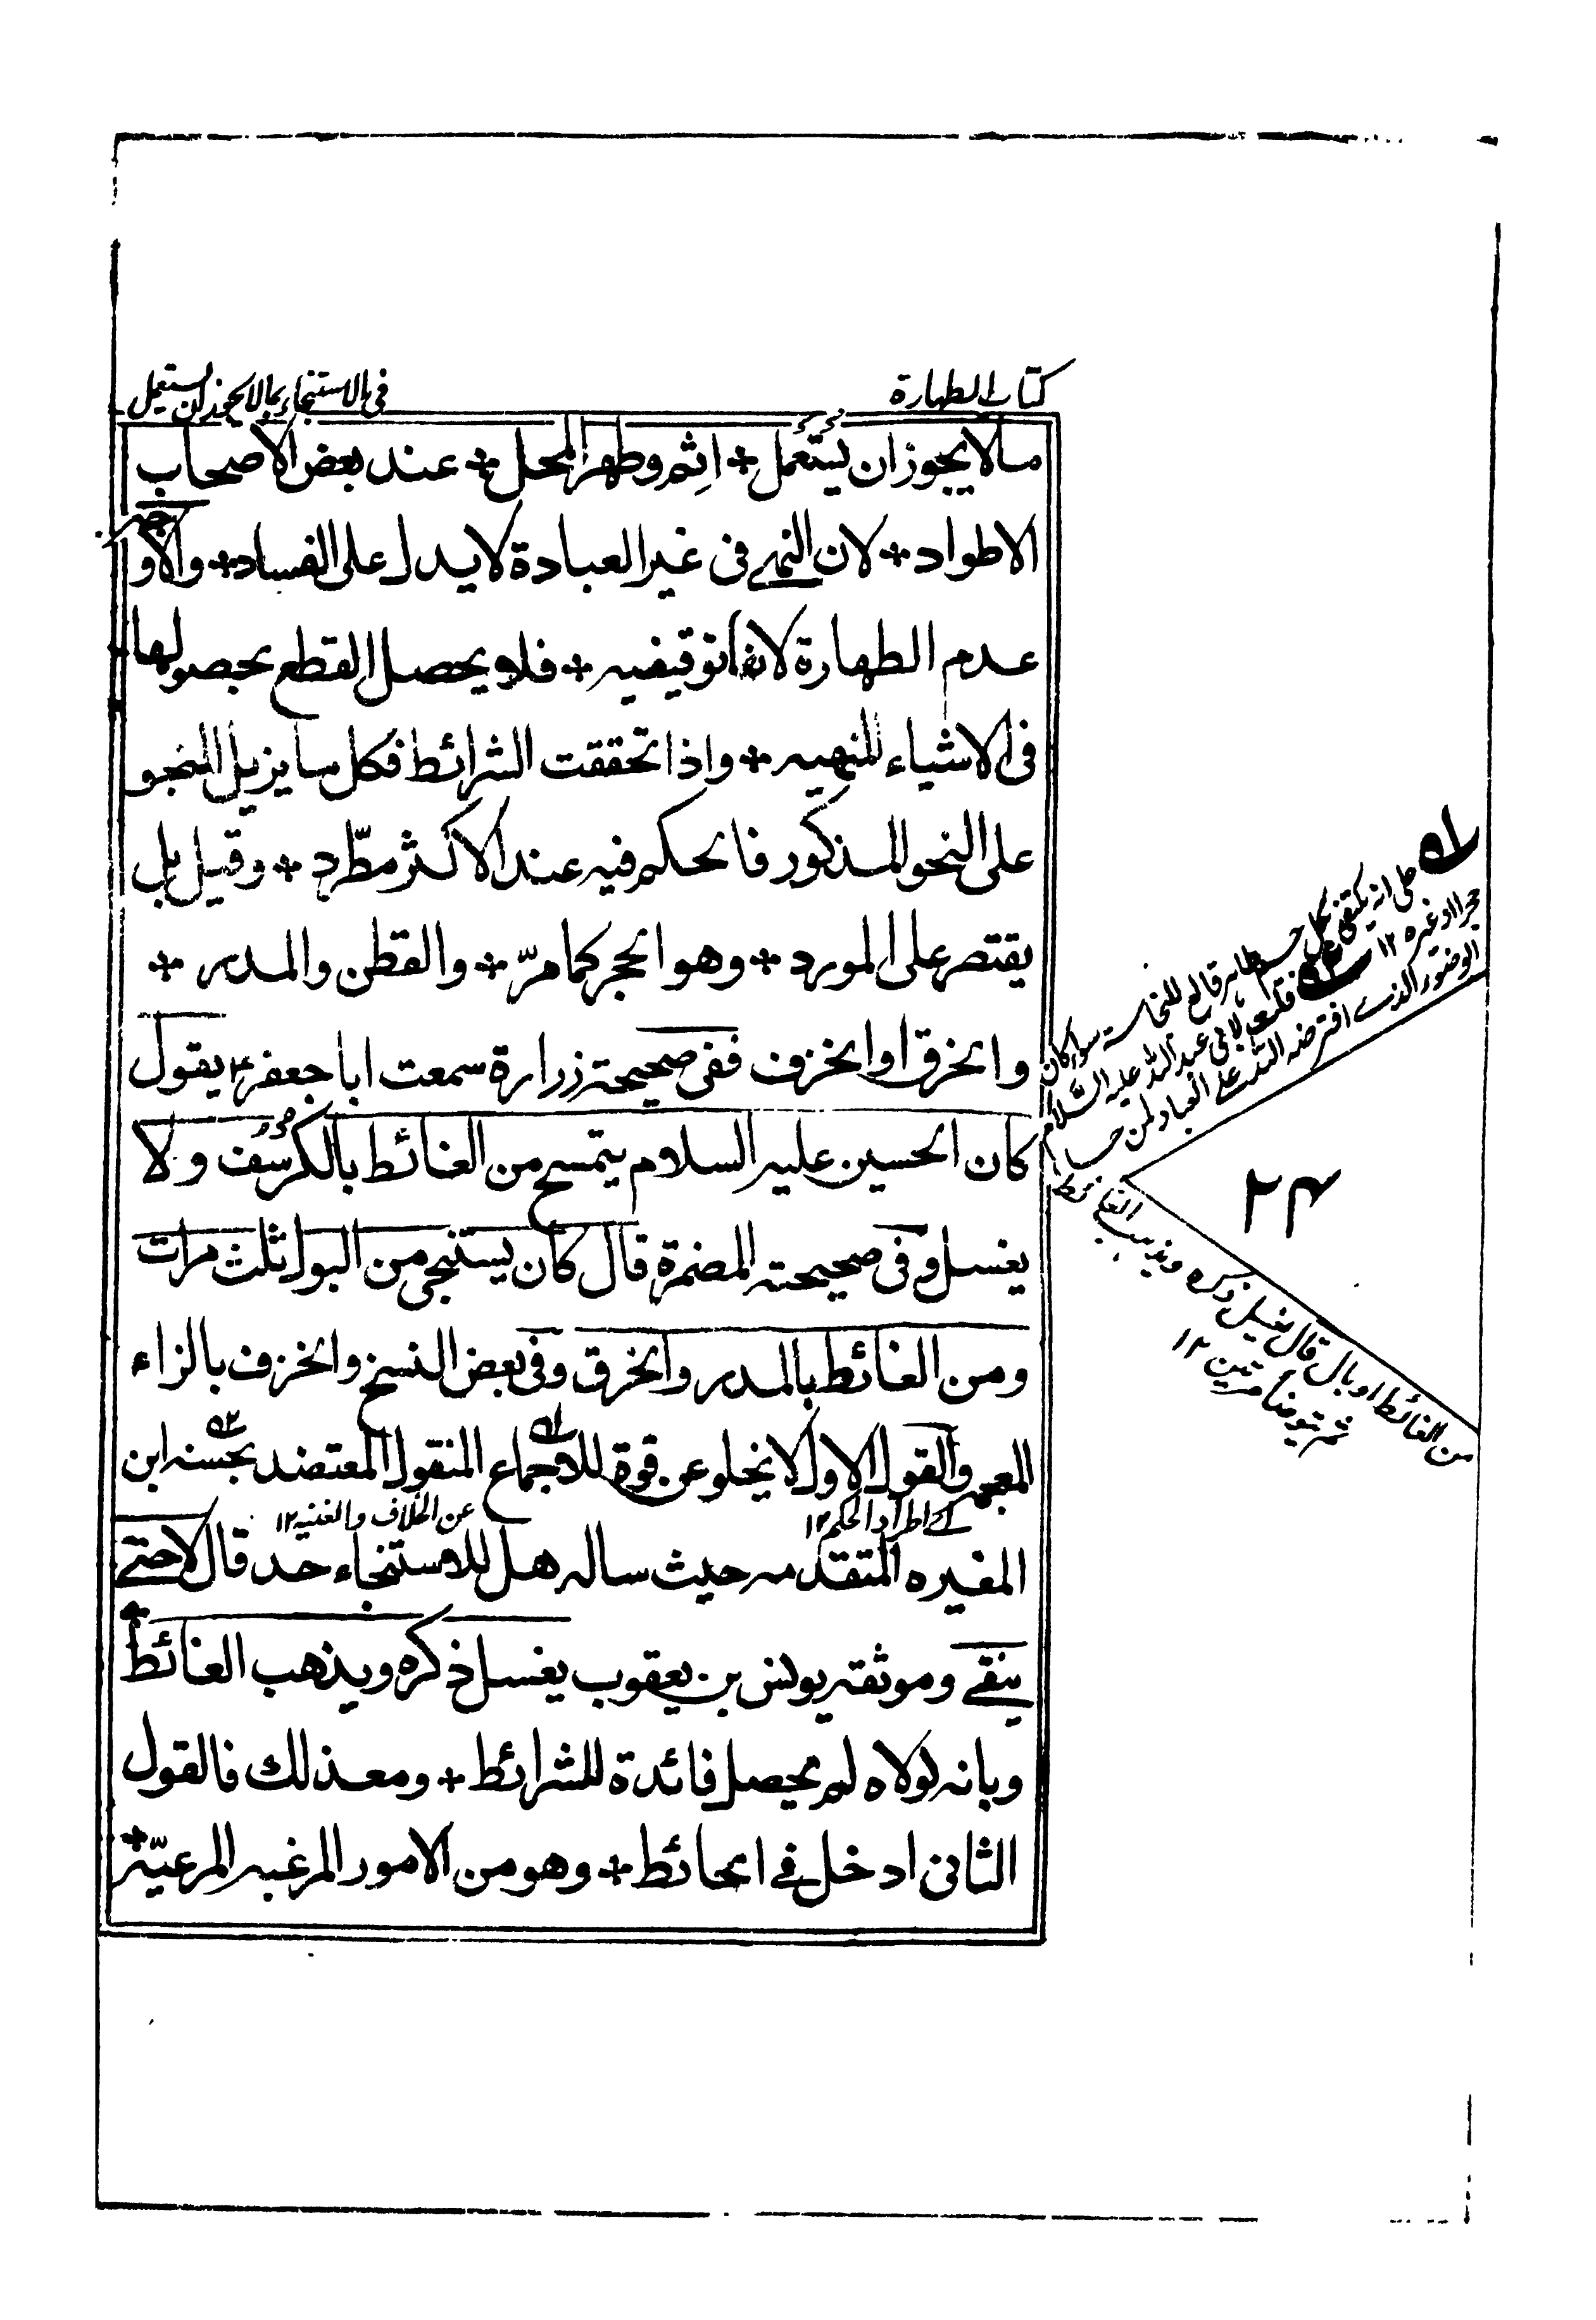 كتاب الطهارة
في الاستنجاء بما لا يجوز ان يستعمل
مالا يجوز ان يستعمل + اثم وطهر المحل + عند بعض الاصحاب
الاطواد + لان النهي في غير العبادة لا يدل على الفساد + والاوجه
عدم الطهارة لانها توقيفيه + فلا يحصل القطع بحصولها
في الاشياء المنهيه + واذا تحققت الشرائط فكل ما يزيل النجو
على النحو المذكور فالحكم فيه عند الاكثر مطّرد + وقيل بل
يقتصر على المورد + وهو الحجر كما مرّ + والقطن والمدر +
والخرق او الخزف ففي صحيحة زرارة سمعت ابا جعفر ع يقول
كان الحسين عليه السلام يتمسح من الغائط بالكرسف ولا
يغسل وفي صحيحته المضمرة قال كان يستنجي من البول ثلث مرات
ومن الغائط بالمدر والخرق وفي بعض النسخ والخزف بالزاء
المعجمه والقول الاول لا يخلو عن قوة للاجماع المنقول المعتضد بحسنه ابن
اے اطراد الحكم ١٢
عن الخلاف والغنيه ١٢
المغيره المتقدمه حيث ساله هل للاستنجاء حد قال لا حتے
ينقے وموثقه يونس بن يعقوب يغسل ذكره ويذهب الغائط +
وبانه لولاه لم يحصل فائدة للشرائط + ومع ذلك فالقول
الثاني ادخل في الحائط + وهو من الامور المرغبه المرعيّه +
على انه يكتفي بكل جسم طاهر قالع للنجاسة سواء كان
حجرا او غيره ١٢ قلت لابي عبد الله عليه السّلام
الوضوء الذے افترضه الله علے العباد لمن جاء
من الغائط او بال قال يغسل ذكره ويذهب الغائط
ثم يتوضأ مرتين ١٢
٢٤